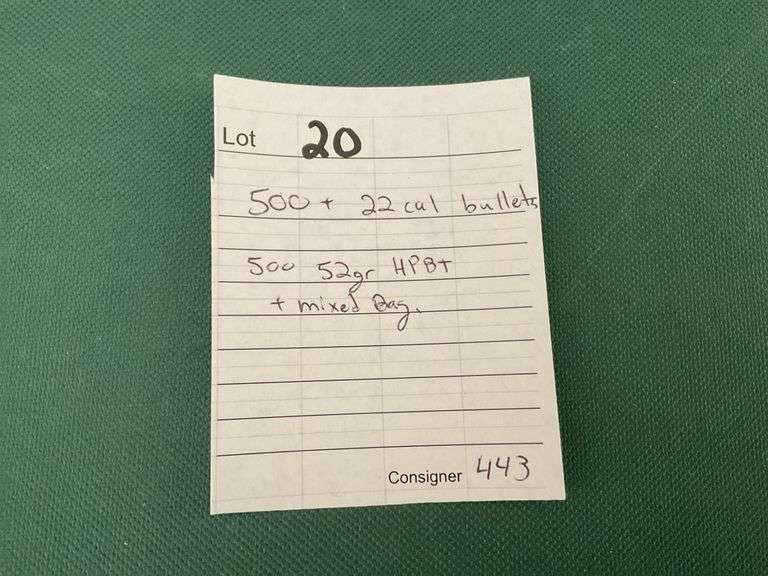 Lot 20
500 + 22 cal bullets
500 52gr HPBT
+ mixed Bag.
Consigner 443